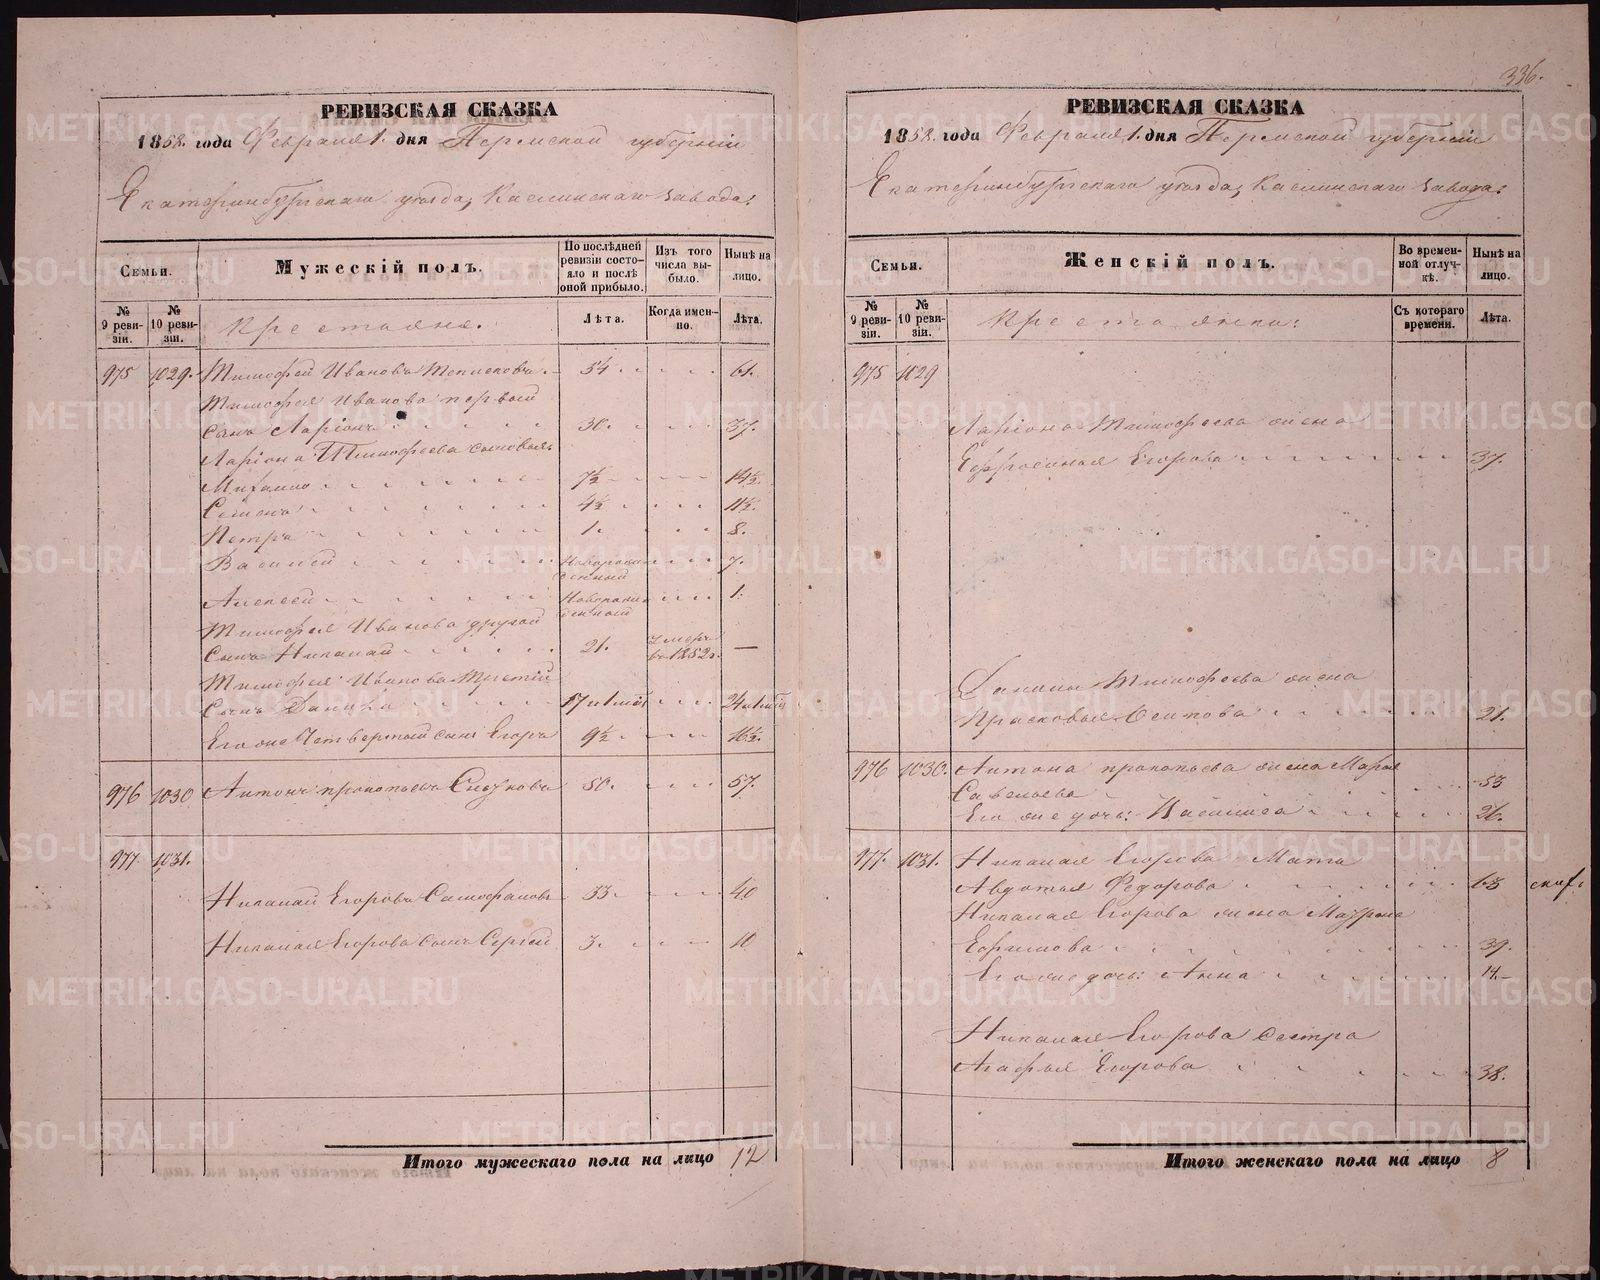 336.
РЕВИЗСКАЯ СКАЗКА
1858. года Февраля 1. дня Пермской губерніи
Екатеринбургскаго уезда, Каслинскаго завода:
Семьи.
Мужескій полъ.
По послѣдней ревизіи состояло и послѣ оной прибыло.
Изъ того числа выбыло.
Нынѣ на лицо.
№ 9 ревизіи.
№ 10 ревизіи.
Крестьяне.
Лѣта.
Когда именно.
Лѣта.
975 1029. Тимофей Ивановъ 54 61.
Тимофея Иванова первый
сынъ Ларіонъ 30. 37.
Ларіона Тимофеева сыновья:
Михаило 7½ 14½.
Семенъ 4½ 11½.
Петръ 1. 8.
Василей Новорожденный 7.
Алексей Новорожденный 1.
Тимофея Иванова другой
сынъ Николай 21. умеръ въ 1852 г. —
Тимофея Иванова третій
сынъ Данила 17 24
Его же четвертый сынъ Егоръ 9½ 16½.
976 1030 Антонъ Прокопьевъ 50. 57.
977. 1031.
Николай Егоровъ 33. 40
Николая Егорова сынъ Сергей 3. 10
Итого мужескаго пола на лицо 12
РЕВИЗСКАЯ СКАЗКА
1858. года Февраля 1. дня Пермской губерніи
Екатеринбургскаго уезда, Каслинскаго завода:
Семьи.
Женскій полъ.
Во временной отлучкѣ.
Нынѣ на лицо.
№ 9 ревизіи.
№ 10 ревизіи.
Съ котораго времени.
Лѣта.
975 1029
Ларіона Тимофеева жена
Ефросинья Егорова 37.
Данилы Тимофеева жена
Прасковья Осипова 21.
976 1030. Антона Прокопьева жена Марья
Савельева 53
Его же дочь: Василиса 26.
977. 1031. Николая Егорова Мать
Авдотья Федорова 63
Николая Егорова жена Маврена
Ефимова 39.
Его же дочь: Анна 14.
Николая Егорова сестра
Агафья Егорова 38.
Итого женскаго пола на лицо 8
METRIKI.GASO-URAL.RU